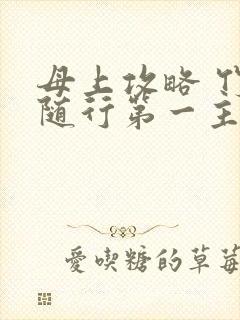 母上攻略
随行第一主
愛喫糖的草莓